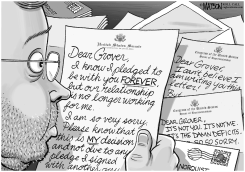 R.J. MATSON
United States Senate
Dear Grover,
I know I pledged to
be with you FOREVER,
but our relationship
is no longer working
for me.
I am so very sorry.
Please know that
this is MY decision
and not due to any
pledge I signed
with another
Dear Grover,
I can't believe I
am writing you this
letter.
DEAR GROVER,
IT'S NOT YOU. IT'S NOT ME.
IT'S THE DAMN DEFICITS.
SO SORRY
NORQUIST